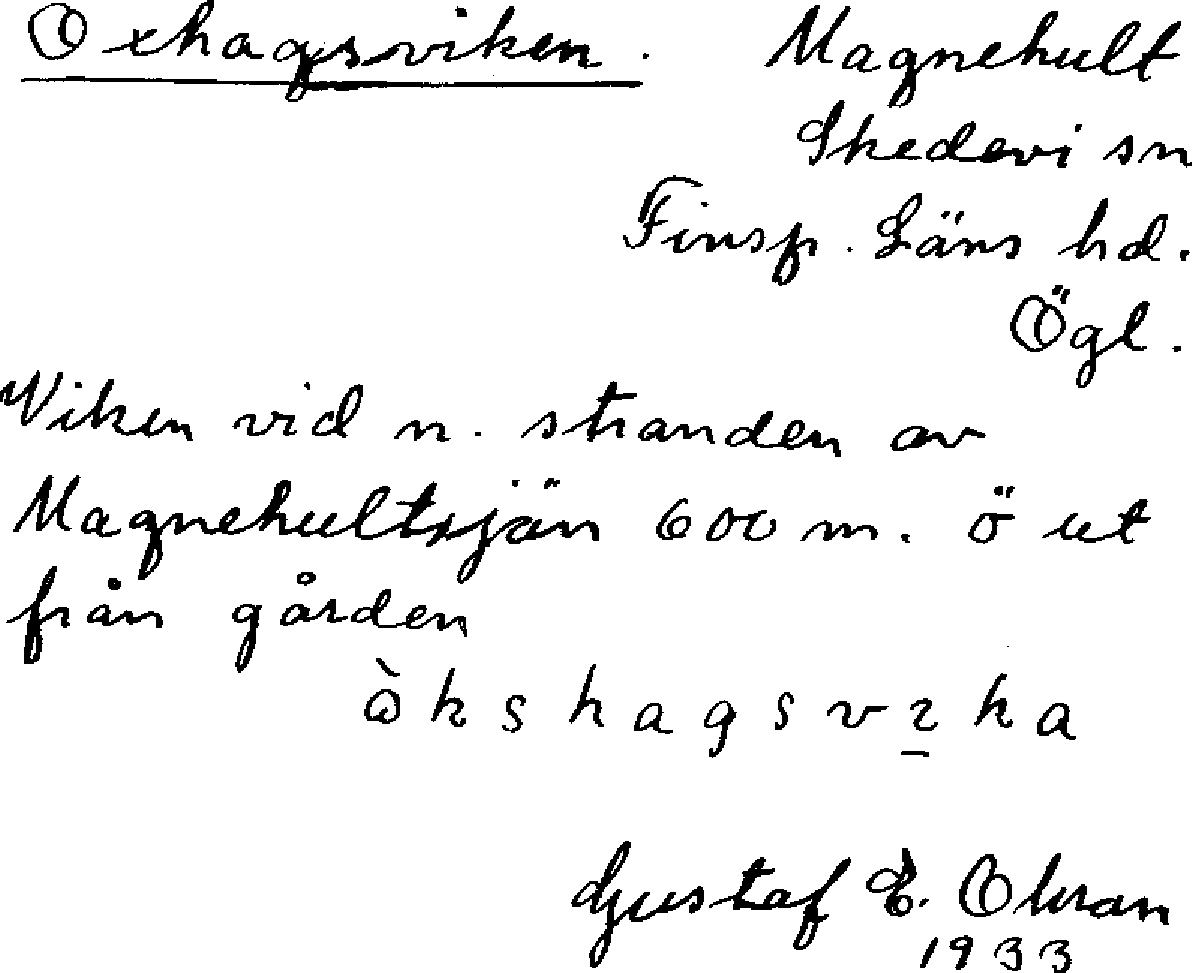 Oxhagsviken. Magnehult
Skedevi sn
Finsp. Läns hd.
Ögl.
Viken vid n. stranden av
Magnehultsjön 600 m. ö ut
från gården
Gustaf E.
1933